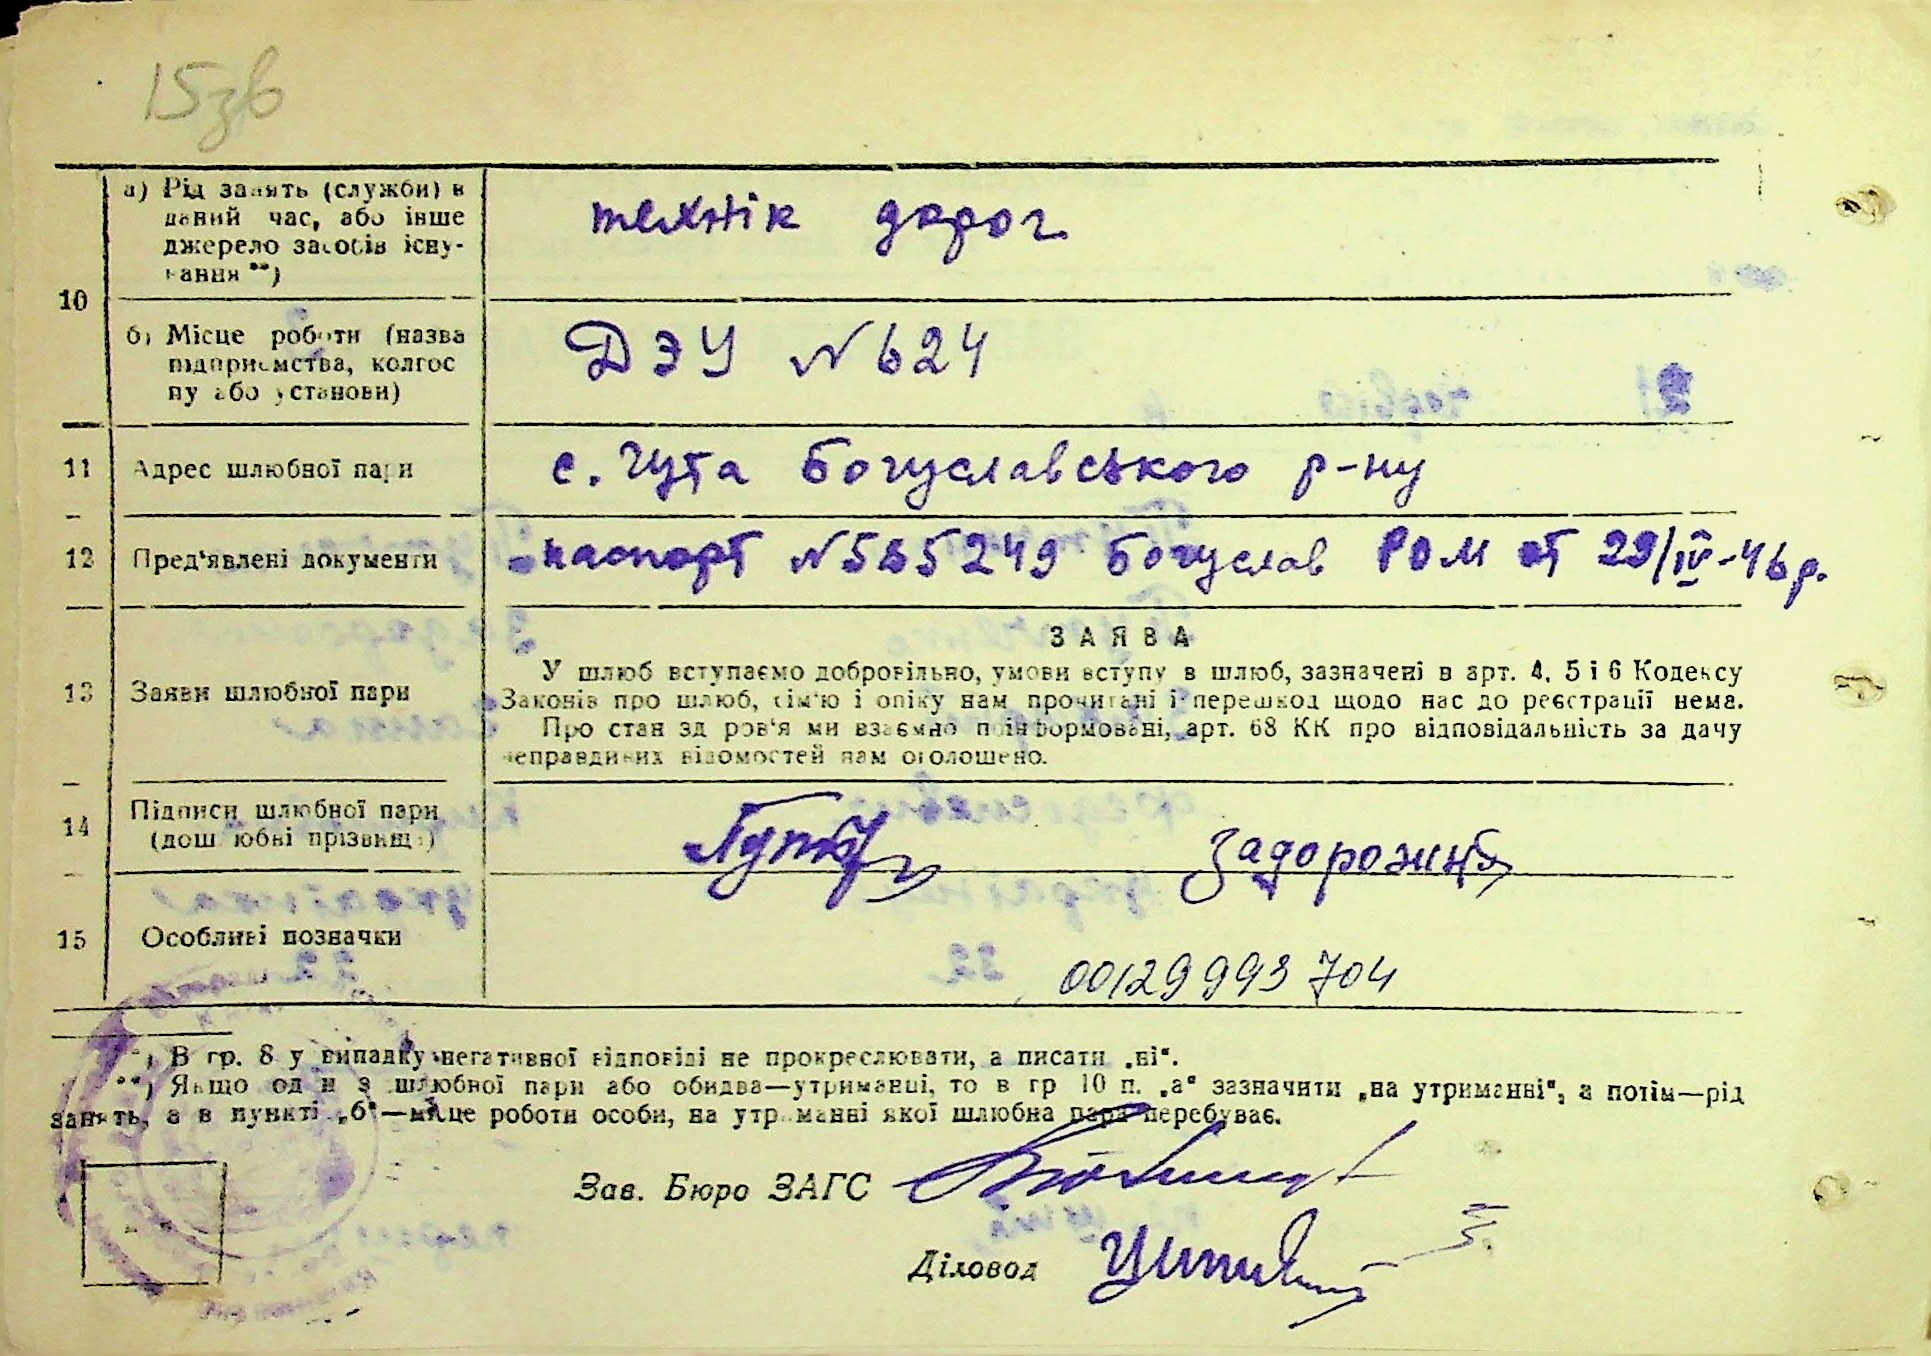 15зв
а) Рід занять (служби) в
даний час, або інше
джерело засобів існу-
вання **)
технік дорог
10
б) Місце роботи (назва
підприємства, колгос
пу або установи)
ДЭУ №624
11 Адрес шлюбної пари с. Гута Богуславського р-ну
12 Пред'явлені документи паспорт №585249 Богуслав РОМ от 29/IV-46р.
ЗАЯВА
13 Заяви шлюбної пари
У шлюб вступаємо добровільно, умови вступу в шлюб, зазначені в арт. 4, 5 і 6 Кодексу
Законів про шлюб, сім'ю і опіку нам прочитані і перешкод щодо нас до реєстрації нема.
Про стан здоров'я ми взаємно поінформовані, арт. 68 КК про відповідальність за дачу
неправдивих відомостей нам оголошено.
14 Підписи шлюбної пари
(дошлюбні прізвища)
Задорожня
15 Особливі позначки
00129993704
*) В гр. 8 у випадку негативної відповіді не прокреслювати, а писати „ні“.
**) Якщо один з шлюбної пари або обидва—утриманці, то в гр 10 п. „а“ зазначити „на утриманні“, а потім—рід
занять, а в пункті „б“—місце роботи особи, на утриманні якої шлюбна пара перебуває.
Зав. Бюро ЗАГС
Діловод